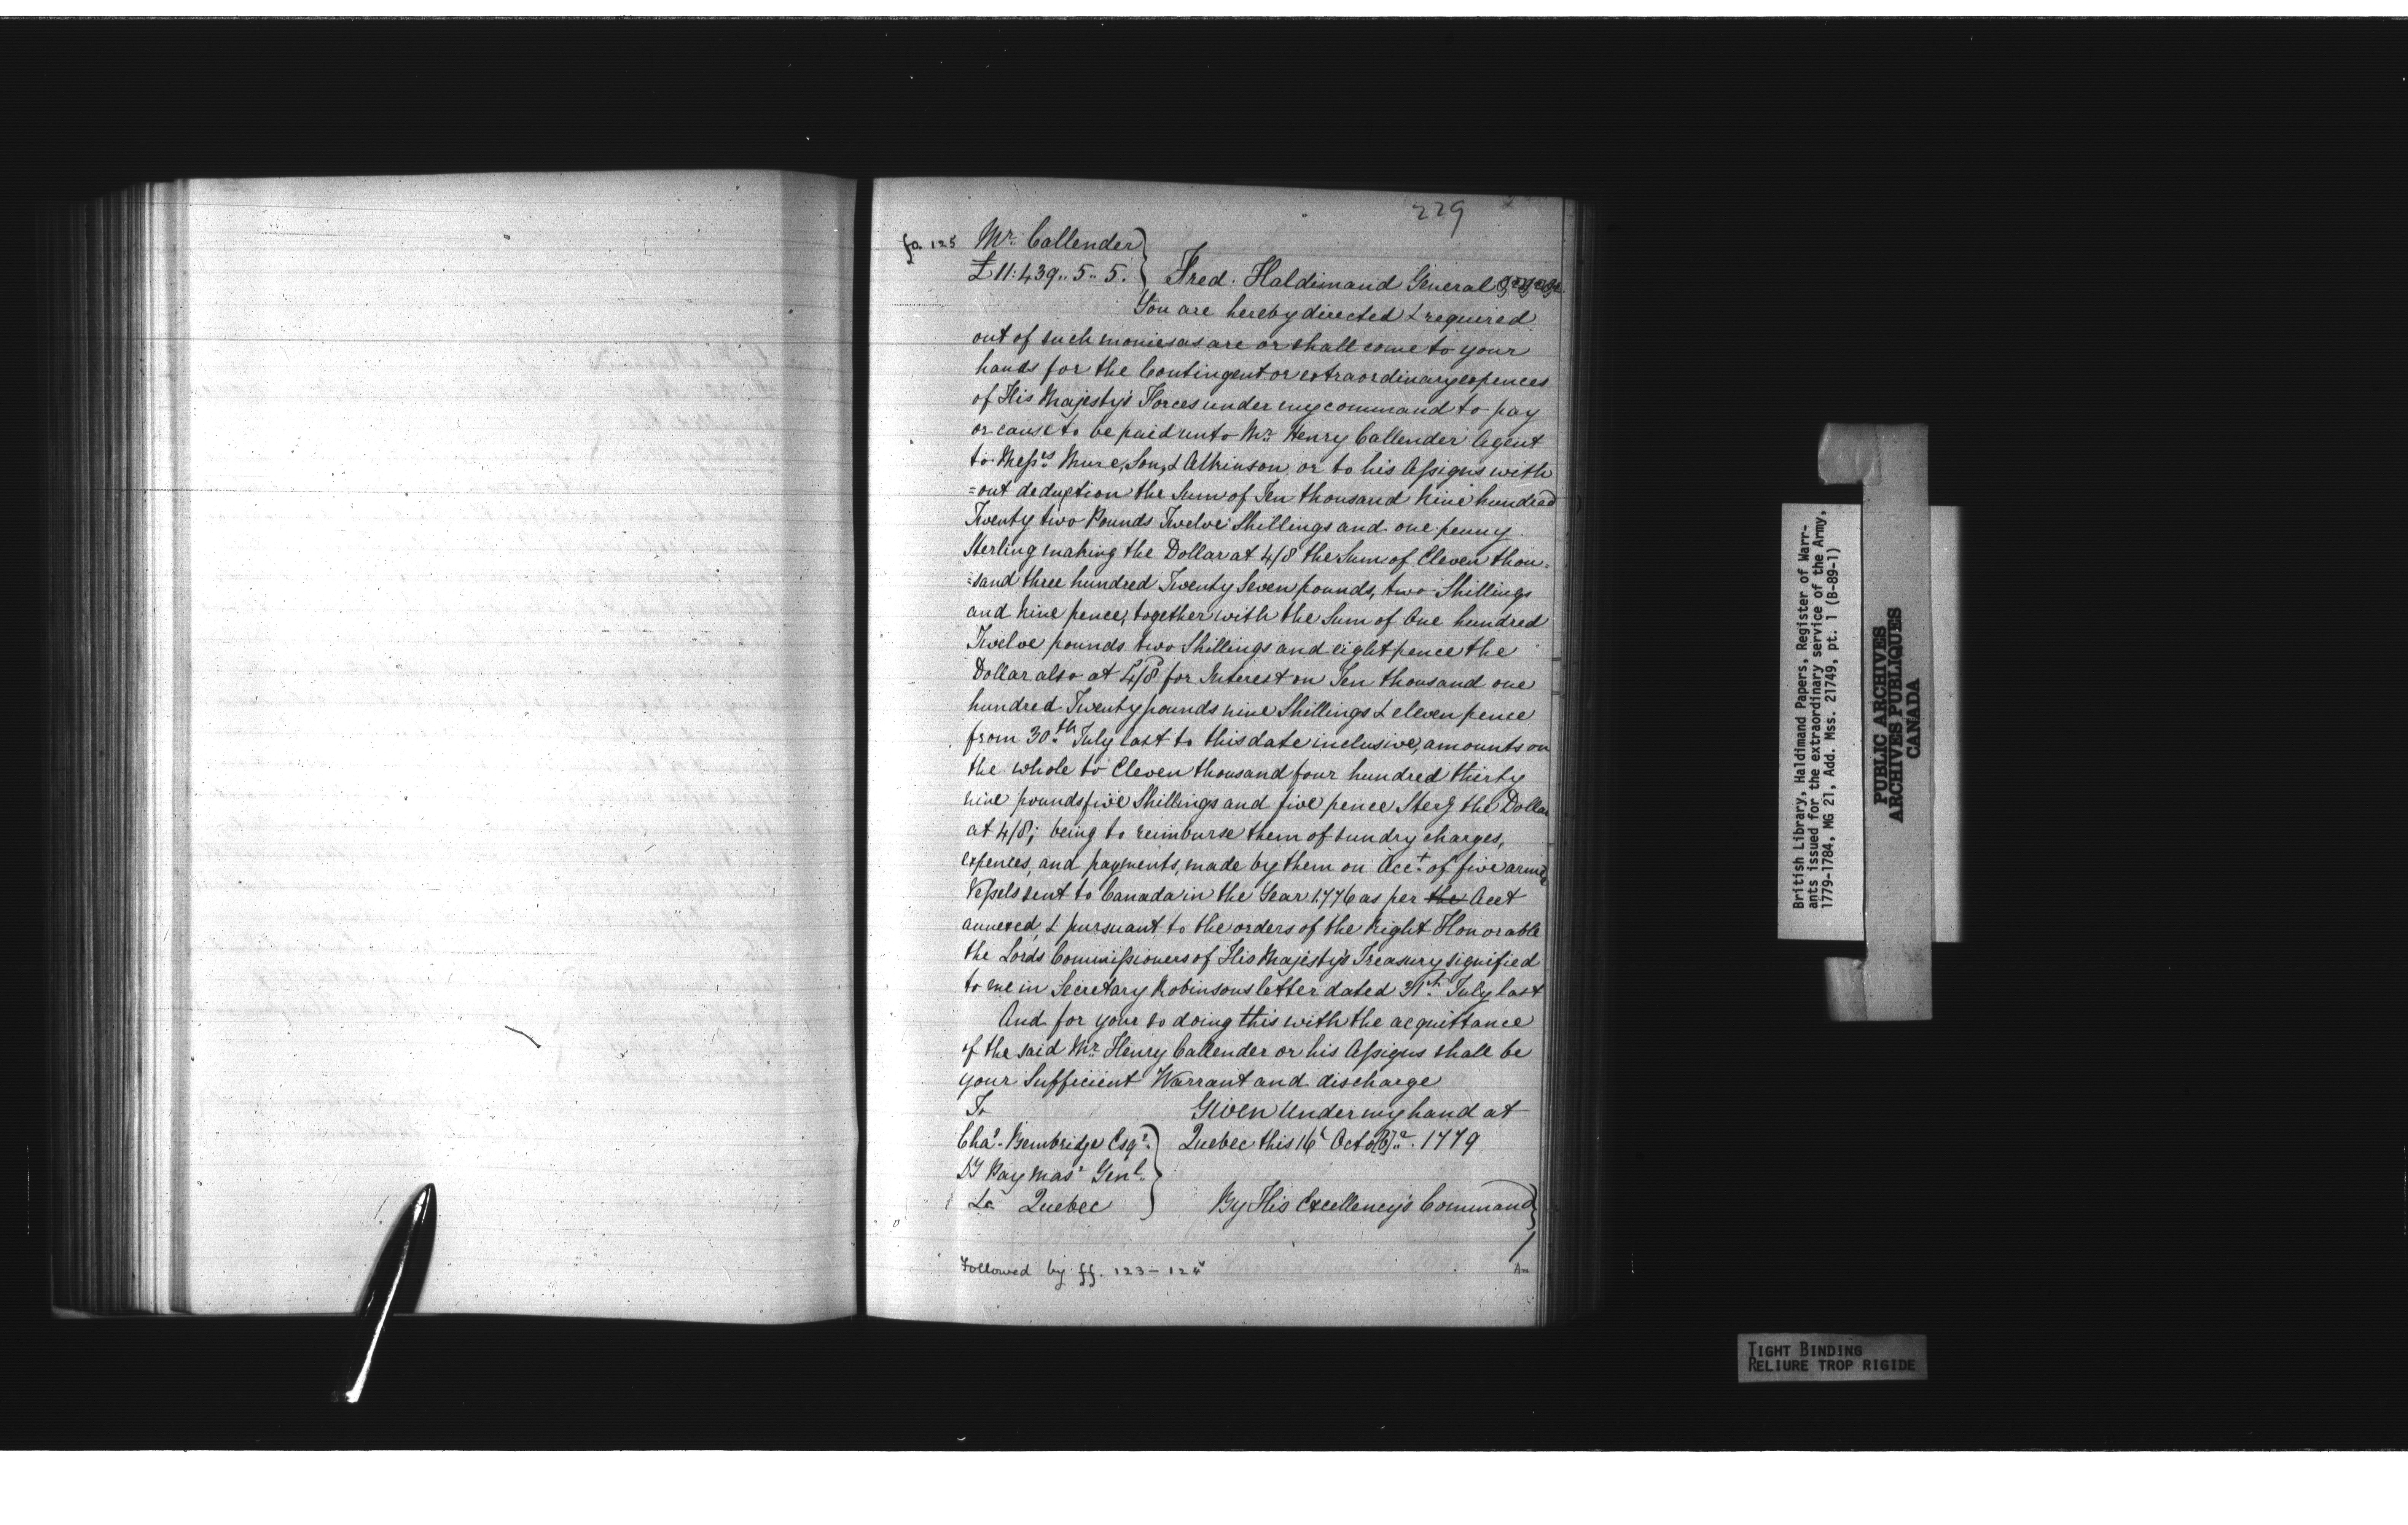 229
fo. 125 Mr. Callender
£11:439..5..5. Fred: Haldimand General
You are hereby directed & required
out of such monies as are or shall come to your
hands for the Contingent or extraordinary expences
of His Majesty's Forces under my command to pay
or cause to be paid unto Mr. Henry Callender Agent
to Messrs. Mure, Son, & Atkinson, or to his Assigns with
=out deduction the Sum of Ten thousand Nine hundred
Twenty two Pounds Twelve Shillings and one penny
Sterling making the Dollar at 4/8 the Sum of Eleven thou=
=sand three hundred Twenty Seven pounds, two Shillings
and Nine pence, together with the Sum of One hundred
Twelve pounds two Shillings and eight pence the
Dollar also at 4/8 for Interest on Ten thousand one
hundred Twenty pounds nine Shillings & eleven pence
from 30th. July last to this date inclusive, amounts on
the whole to Eleven thousand four hundred thirty
nine pounds five Shillings and five pence Sterg the Dollar
at 4/8; being to reimburse them of sundry charges,
expences, and payments, made by them on Acct. of five armed
Vessels sent to Canada in the Year 1776 as per the Acct
annexed, & pursuant to the orders of the Right Honorable
the Lords Commissioners of His Majesty's Treasury signified
to me in Secretary Robinsons letter dated 31st. July last
And for your so doing this with the acquittance
of the said Mr. Henry Callender or his Assigns shall be
your Sufficient Warrant and discharge
To Given Under my hand at
Chas. Bembridge Esqr. Quebec this 16t Octo[b]r. 1779
Dy Paymasr Genl.
&c Quebec By His Excellency's Command
Followed by ff. 123-124
British Library, Haldimand Papers, Register of Warr-
ants issued for the extraordinary service of the Army,
1779-1784, MG 21, Add. Mss. 21749, pt. 1 (B-89-1)
PUBLIC ARCHIVES
ARCHIVES PUBLIQUES
CANADA
TIGHT BINDING
RELIURE TROP RIGIDE